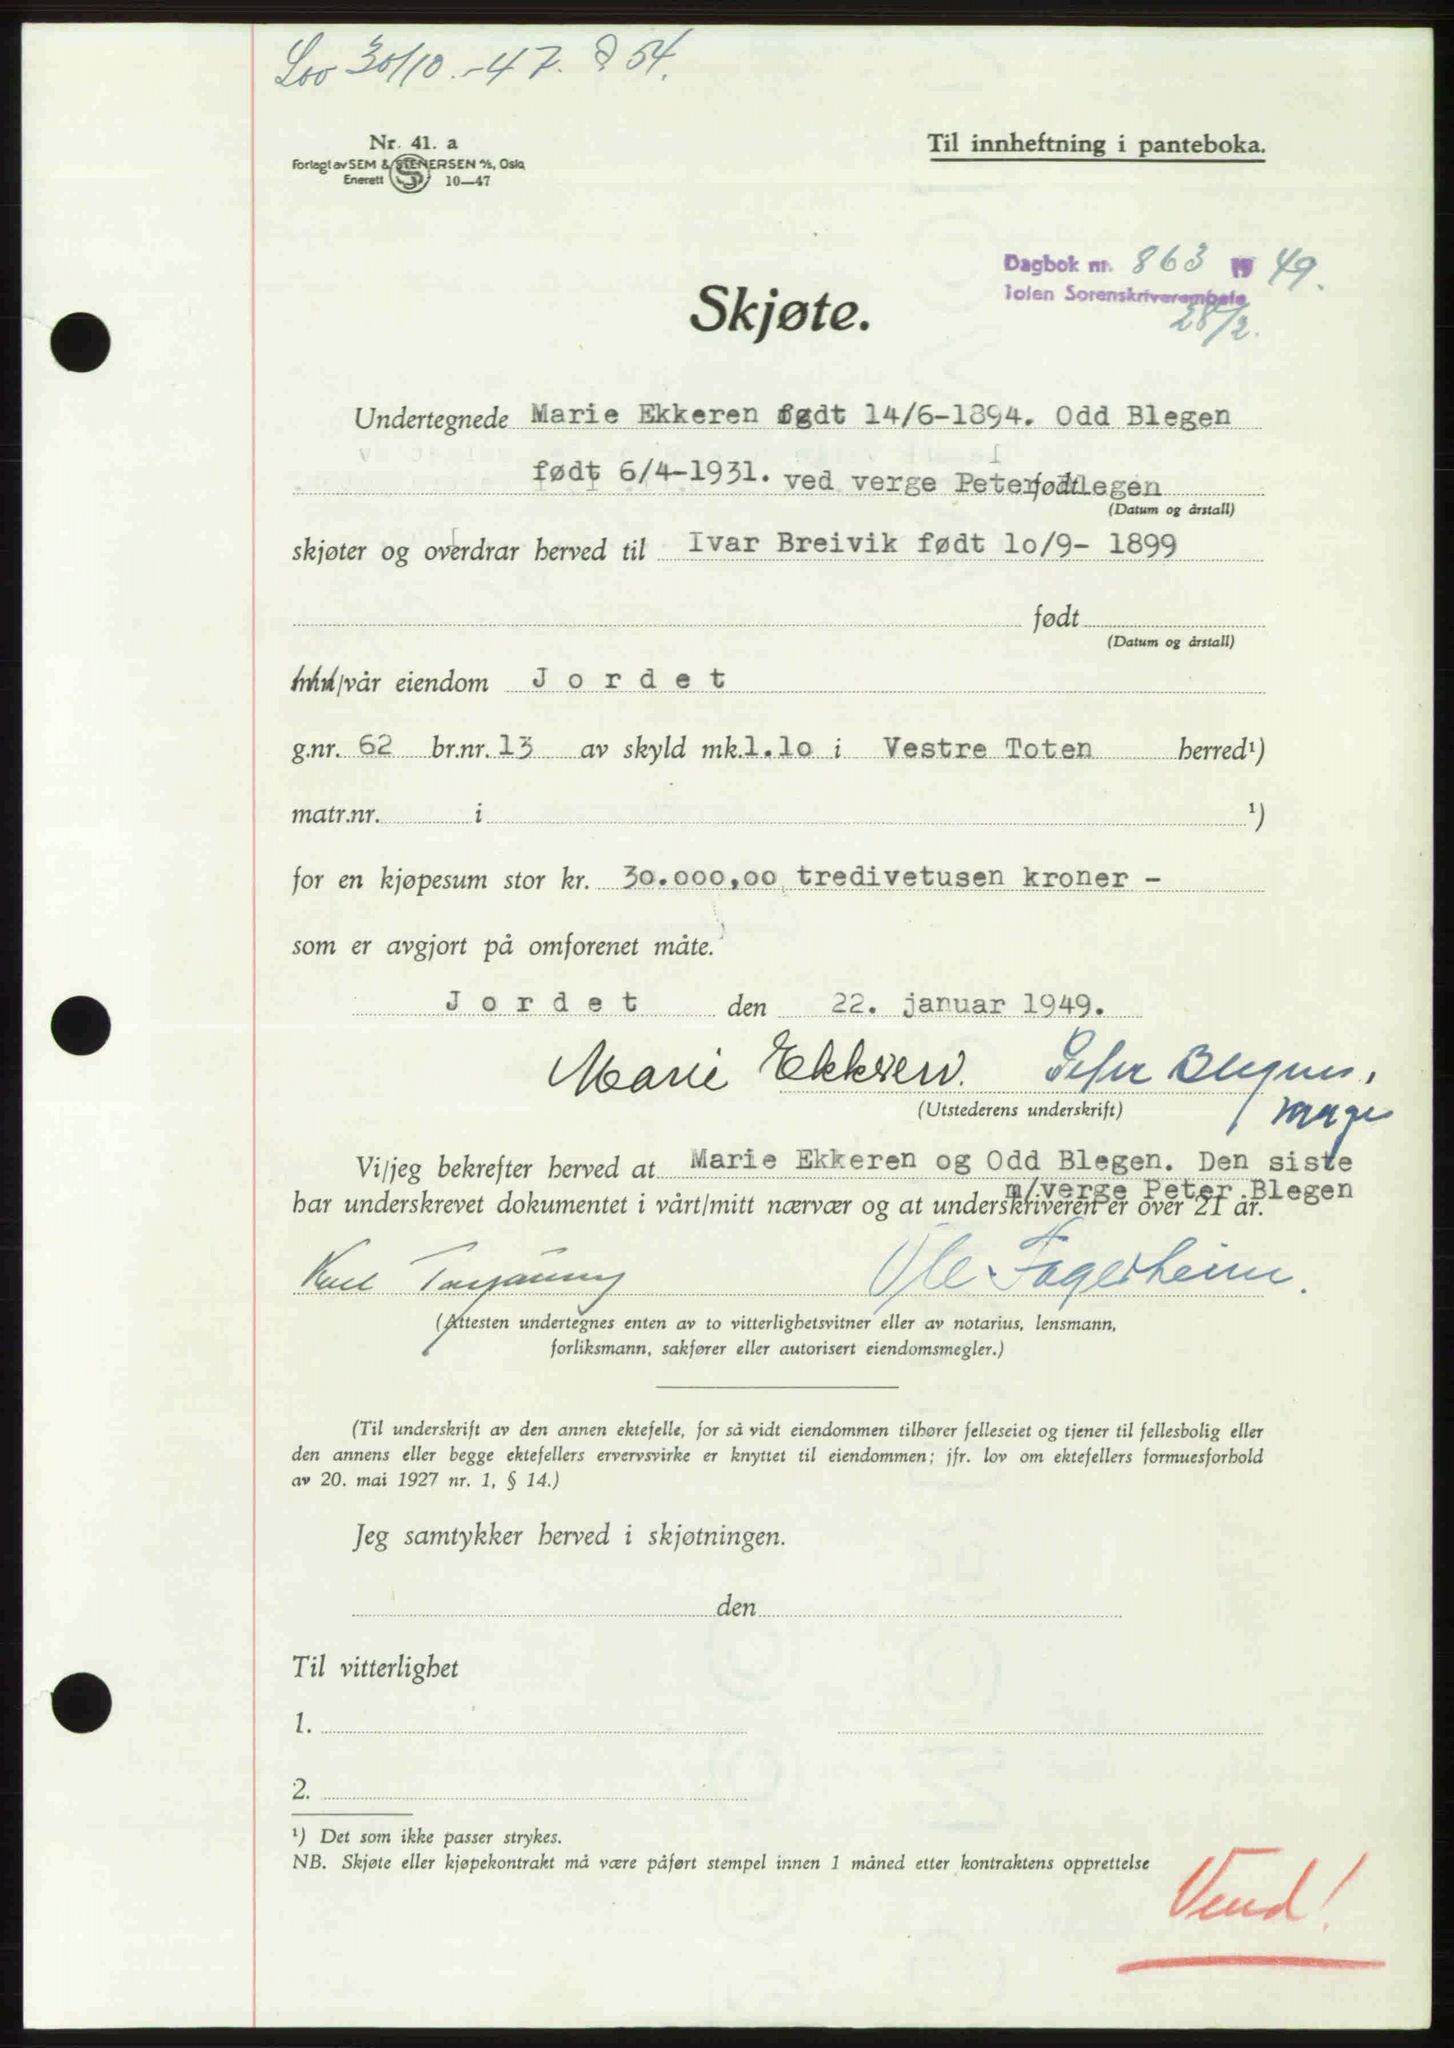 Lov 30/10.-47. § 54.
Nr. 41. a
Forlagt av SEM & STENERSEN A/S, Oslo
Enerett 10—47
Til innheftning i panteboka.
Dagbok nr. 863 19 49.
Toten Sorenskriverembete
28/2.
Skjøte.
Undertegnede Marie Ekkeren født 14/6-1894. Odd Blegen
født 6/4-1931. ved verge Peter Blegen
født
(Datum og årstall)
skjøter og overdrar herved til Ivar Breivik født 10/9- 1899
født
(Datum og årstall)
min/vår eiendom Jordet
g.nr. 62 br.nr. 13 av skyld mk. 1.10 i Vestre Toten herred¹)
matr.nr. i ¹)
for en kjøpesum stor kr. 30.000,00 tredivetusen kroner -
som er avgjort på omforenet måte.
Jordet den 22. januar 1949.
Marie Ekkeren. Peter Blegen,
verge
(Utstederens underskrift)
Vi/jeg bekrefter herved at Marie Ekkeren og Odd Blegen. Den siste
m/verge Peter Blegen
har underskrevet dokumentet i vårt/mitt nærvær og at underskriveren er over 21 år.
Ole Fagerheim.
(Attesten undertegnes enten av to vitterlighetsvitner eller av notarius, lensmann,
forliksmann, sakfører eller autorisert eiendomsmegler.)
(Til underskrift av den annen ektefelle, for så vidt eiendommen tilhører felleseiet og tjener til fellesbolig eller
den annens eller begge ektefellers ervervsvirke er knyttet til eiendommen; jfr. lov om ektefellers formuesforhold
av 20. mai 1927 nr. 1, § 14.)
Jeg samtykker herved i skjøtningen.
den
Til vitterlighet
1.
2.
¹) Det som ikke passer strykes.
NB. Skjøte eller kjøpekontrakt må være påført stempel innen 1 måned etter kontraktens opprettelse
Vend!